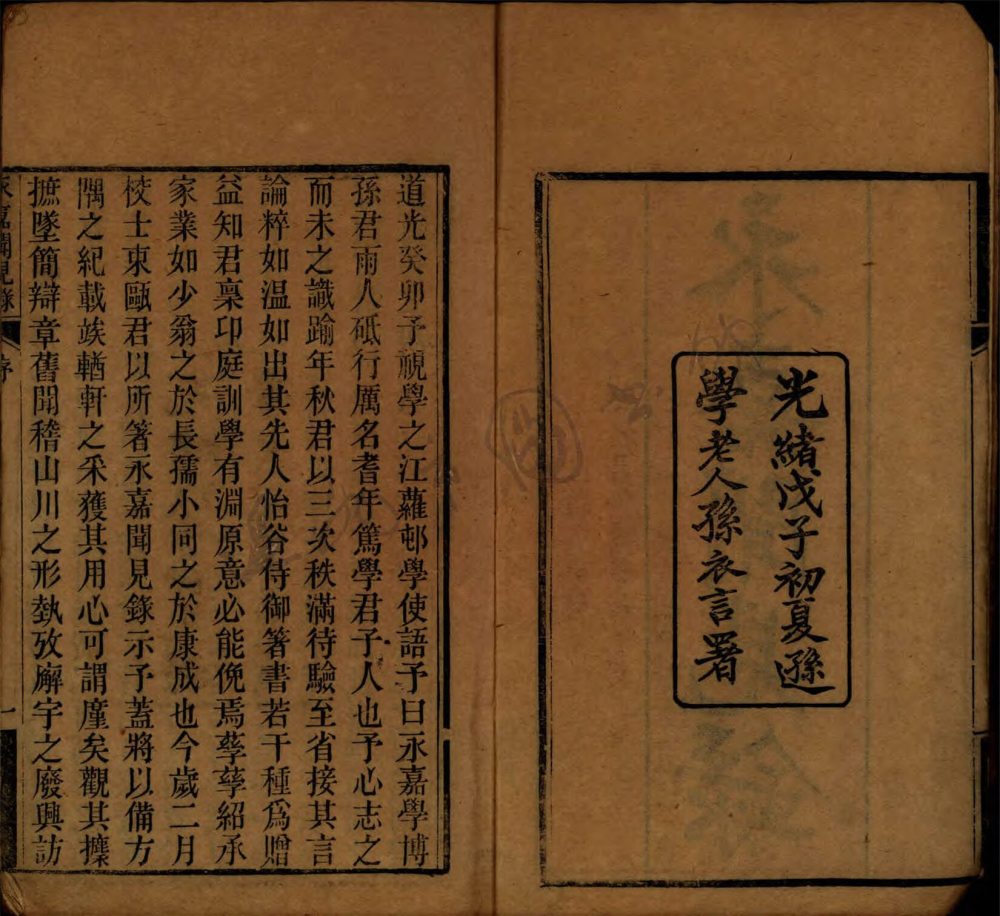 光緒戊子初夏遜
學老人孫衣言署
道光癸卯予視學之江蘿邨學使語予曰永嘉學博
孫君雨人砥行厲名耆年篤學君子人也予心志之
而未之識踰年秋君以三次秩滿待驗至省接其言
論粹如温如出其先人怡谷侍御箸書若干種爲贈
益知君稟卬庭訓學有淵原意必能俛焉孳孳紹承
家業如少翁之於長孺小同之於康成也今歲二月
校士東甌君以所箸永嘉聞見錄示予蓋將以備方
隅之紀載竢輶軒之采獲其用心可謂廑矣觀其攗
摭墜簡辯章舊聞稽山川之形埶攷廨宇之廢興訪
永嘉聞見錄
序
一